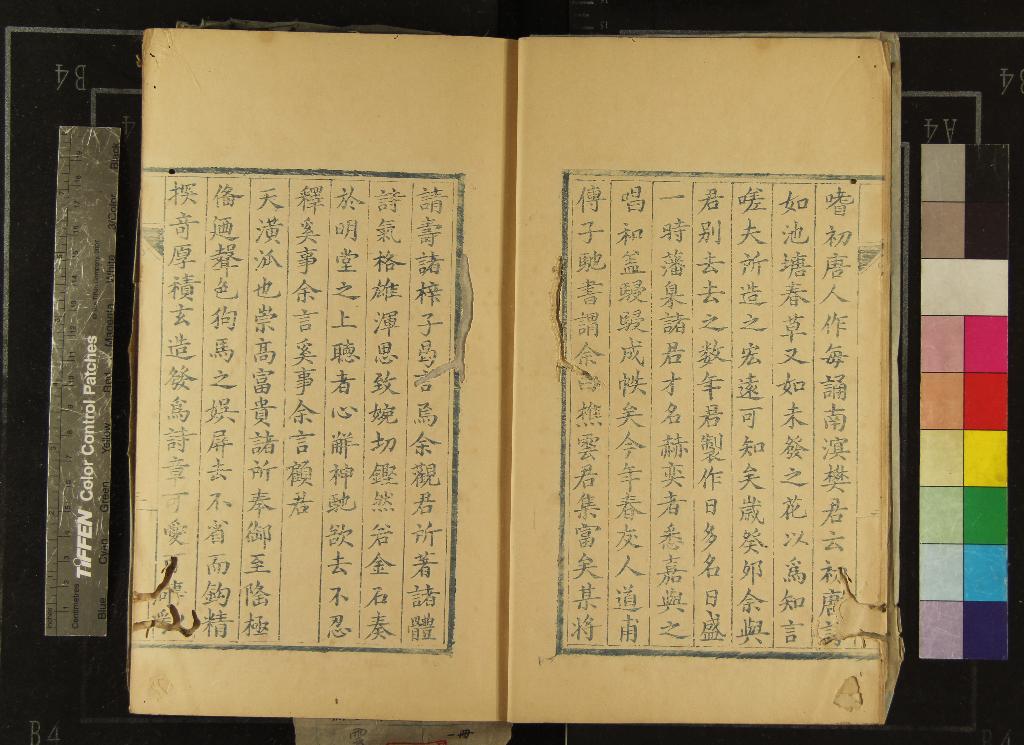 嗜初唐人作每誦南溟樊君云初唐詩
如池塘春草又如未發之花以爲知言
嗟夫所造之宏遠可知矣歲癸卯余與
君别去去之数年君製作日多名日盛
一時藩臬諸君才名赫奕者悉嘉與之
唱和盖駸駸成帙矣今年春友人道甫
傳子馳書謂余曰樵雲君集富矣某将
請壽諸梓子曷言焉余觀君所著諸體
詩氣格雄渾思致婉切鏗然若金石奏
於明堂之上聽者心醉神馳欲去不忍
釋奚事余言奚事余言顧君
天潢派也崇高富貴諸所奉御至隆極
俻廼聲色狗馬之娛屏去不省而鈎精
撰奇厚積玄造發爲詩章可愛
TIFFEN Color Control Patches
Inches
Centimetres
Blue
Cyan
Green
Yellow
Red
Magenta
White
3/Color
Black
B4
A4
一冊